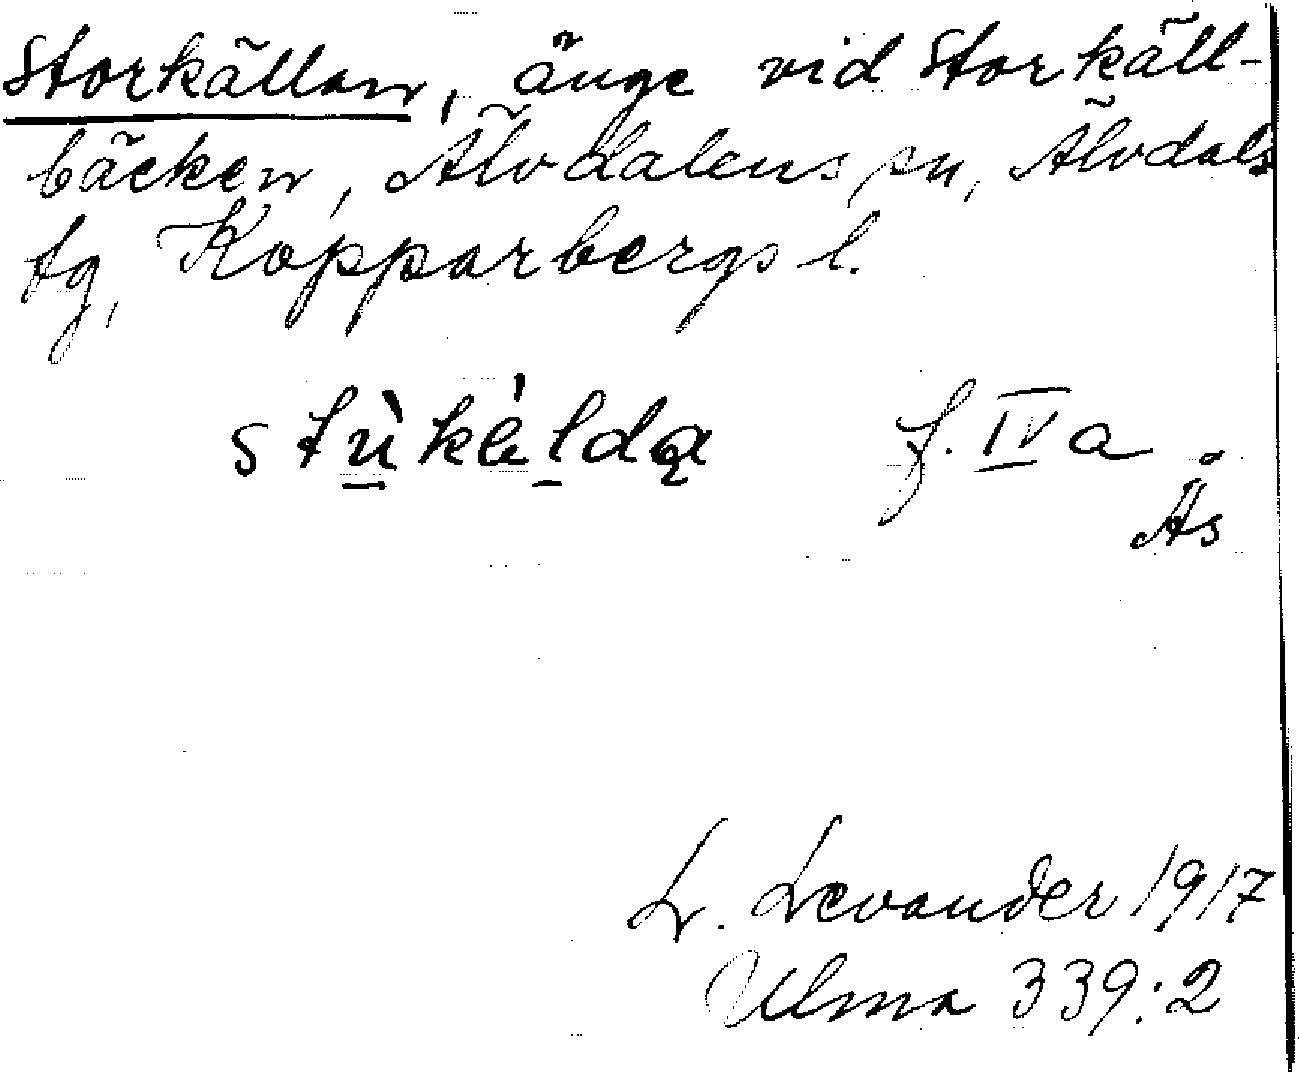 Storkällan, änge vid Storkäll-
bäcken, Älvdalens sn, Älvdals
tg, Kopparbergs l.
f. IV a
Ås
L. Levander 1917
Ulma 339:2